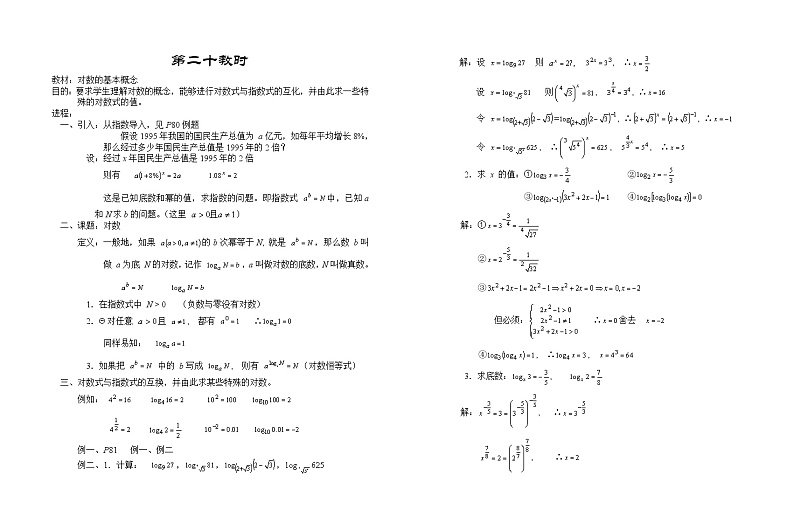 第二十教时
教材：对数的基本概念
目的：要求学生理解对数的概念，能够进行对数式与指数式的互化，并由此求一些特
殊的对数式的值。
进程：
一、引入：从指数导入，见P80例题
假设1995年我国的国民生产总值为 a亿元，如每年平均增长8%，
那么经过多少年国民生产总值是1995年的2倍？
设：经过x年国民生产总值是1995年的2倍
则有 a(1+8%)^x = 2a 1.08^x = 2
这是已知底数和幂的值，求指数的问题。即指数式 a^b = N 中，已知a
和N求b的问题。（这里 a>0且a≠1）
二、课题：对数
定义：一般地，如果 a(a>0,a≠1)的b次幂等于N, 就是 a^b = N，那么数 b叫
做 a为底 N的对数，记作 log_a N = b，a叫做对数的底数，N叫做真数。
a^b = N log_a N = b
1．在指数式中 N > 0 （负数与零没有对数）
2．对任意 a>0且 a≠1， 都有 a^0 = 1 ∴log_a 1 = 0
同样易知： log_a a = 1
3．如果把 a^b = N 中的 b写成 log_a N， 则有 a^{log_a N} = N（对数恒等式）
三、对数式与指数式的互换，并由此求某些特殊的对数。
例如： 4^2 = 16 log_4 16 = 2 10^2 = 100 log_10 100 = 2
4^{1/2} = 2 log_4 2 = 1/2 10^{-2} = 0.01 log_10 0.01 = -2
例一、P81 例一、例二
例二、1．计算： log_9 27，log_{∜3} 81，log_{(2+√3)}(2-√3)，log_{∛(5^4)} 625
解：设 x = log_9 27 则 9^x = 27， 3^{2x} = 3^3， ∴x = 3/2
设 x = log_{∜3} 81 则(∜3)^x = 81， 3^{x/4} = 3^4，∴x = 16
令 x = log_{(2+√3)}(2-√3) = log_{(2+√3)}(2+√3)^{-1}，∴(2+√3)^x = (2+√3)^{-1}，∴x = -1
令 x = log_{∛(5^4)} 625， ∴(∛(5^4))^x = 625， 5^{4x/3} = 5^4， ∴x = 3
2．求 x 的值：①log_3 x = -3/4 ②log_2 x = -5/3
③log_{(2x²-1)}(3x²+2x-1) = 1 ④log_2[log_3(log_4 x)] = 0
解：①x = 3^{-3/4} = 1/∜27
②x = 2^{-5/3} = 1/∛32
③3x²+2x-1 = 2x²-1⇒x²+2x = 0⇒x = 0, x = -2
但必须：{2x²-1>0
2x²-1≠1
3x²+2x-1>0 ∴x = 0舍去 x = -2
④log_3(log_4 x) = 1， ∴log_4 x = 3， x = 4^3 = 64
3．求底数：log_x 3 = -3/5， log_x 2 = 7/8
解：x^{-3/5} = 3 = (3^{-5/3})^{-3/5}， ∴x = 3^{-5/3}
x^{7/8} = 2 = (2^{8/7})^{7/8}， ∴x = 2